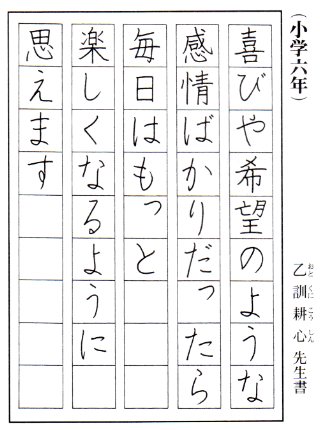 （小学六年）
喜びや希望のような
感情ばかりだったら
毎日はもっと
楽しくなるように
思えます
乙訓耕心先生書
おとくにこうしん